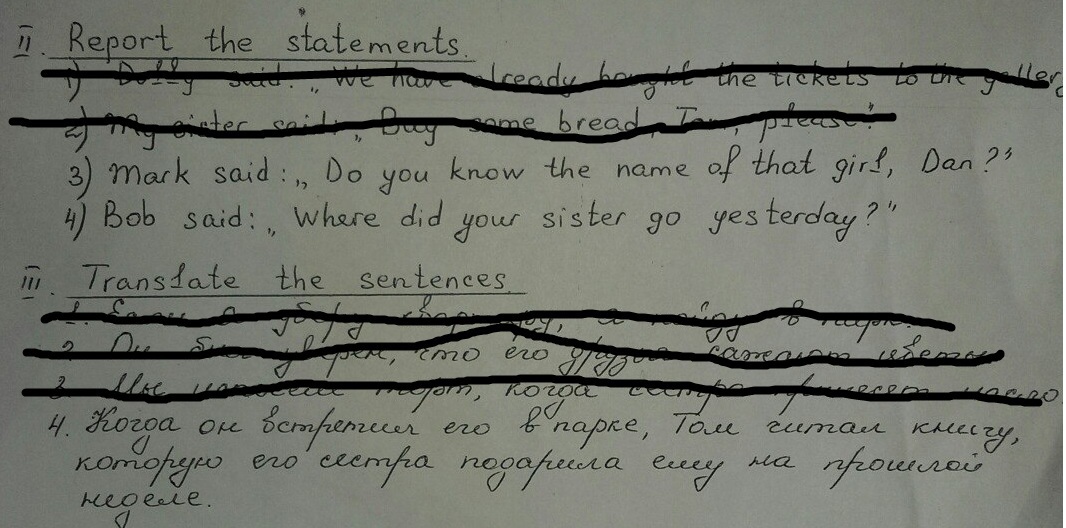 II. Report the statements.
1) Dolly said: „We have already bought the tickets to the
2) My sister said: „Buy some bread, Tom, please."
3) Mark said: „Do you know the name of that girl, Dan?"
4) Bob said: „Where did your sister go yesterday?"
III. Translate the sentences
в парк.
2. уверен, что его друзья сажают цветы
3. Мы торт, когда сестра принесет масло
4. Когда он встретил его в парке, Том читал книгу,
которую его сестра подарила ему на прошлой
неделе.